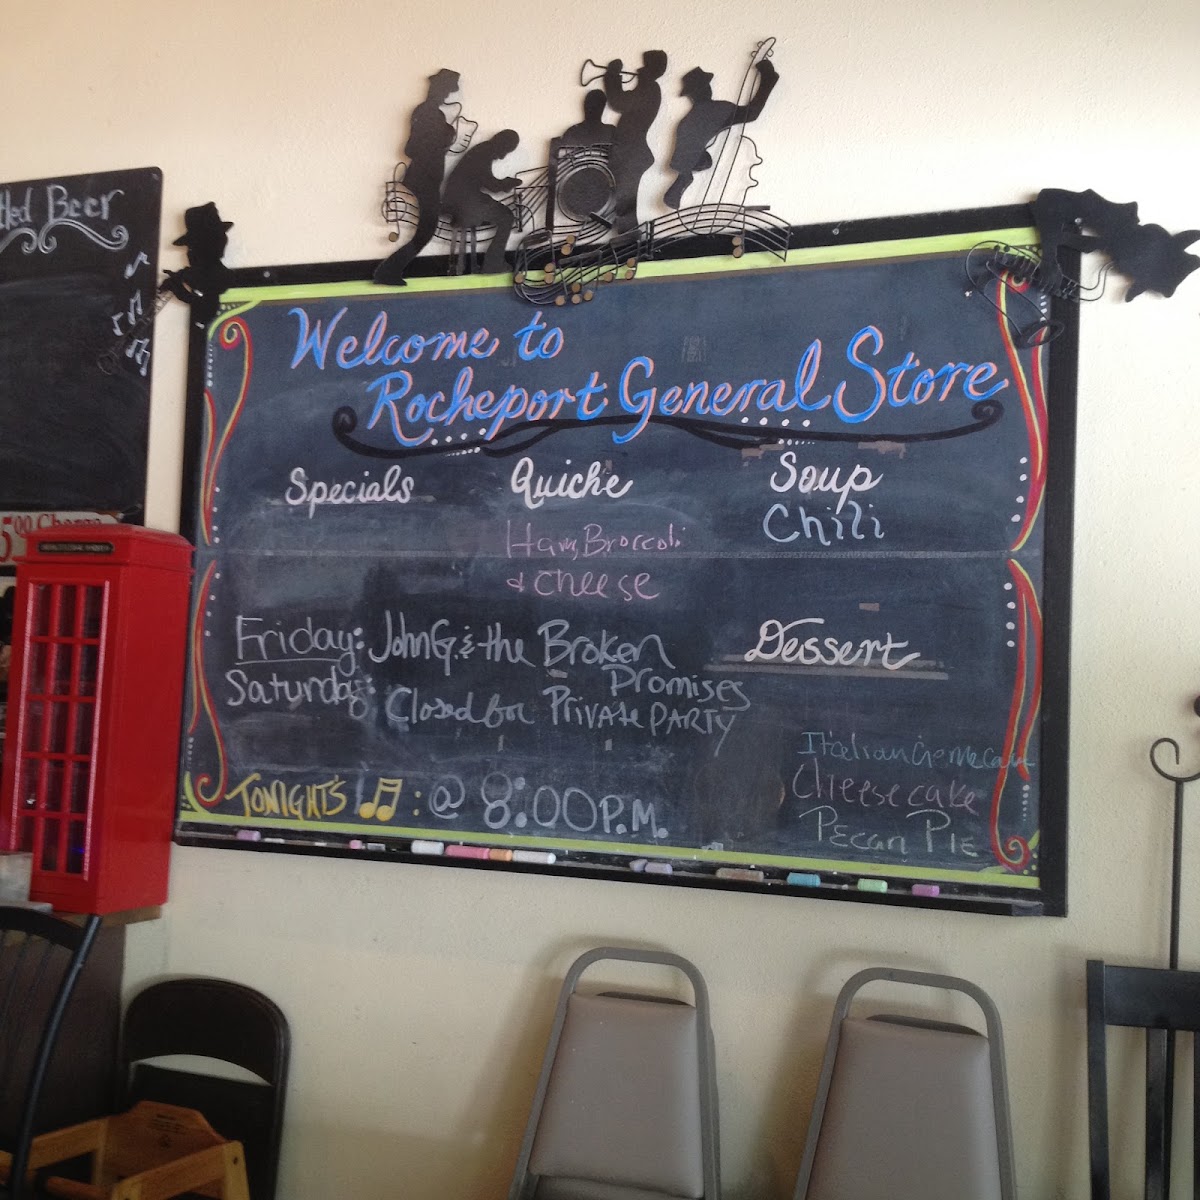 Welcome to
Rocheport General Store
Specials
Quiche
Ham, Broccoli
& cheese
Soup
Chili
Friday: John G. & the Broken
Promises
Saturday: Closed for Private PARTY
Dessert
Italian Creme Cake
Cheesecake
Pecan PIE
TONIGHT'S : @ 8:00 P.M.
Beer
5.00 Charge